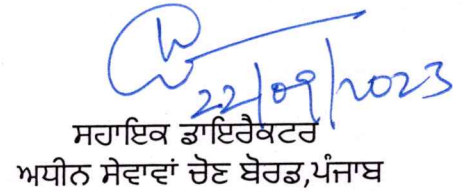 22/09/2023
ਸਹਾਇਕ ਡਾਇਰੈਕਟਰ
ਅਧੀਨ ਸੇਵਾਵਾਂ ਚੋਣ ਬੋਰਡ,ਪੰਜਾਬ